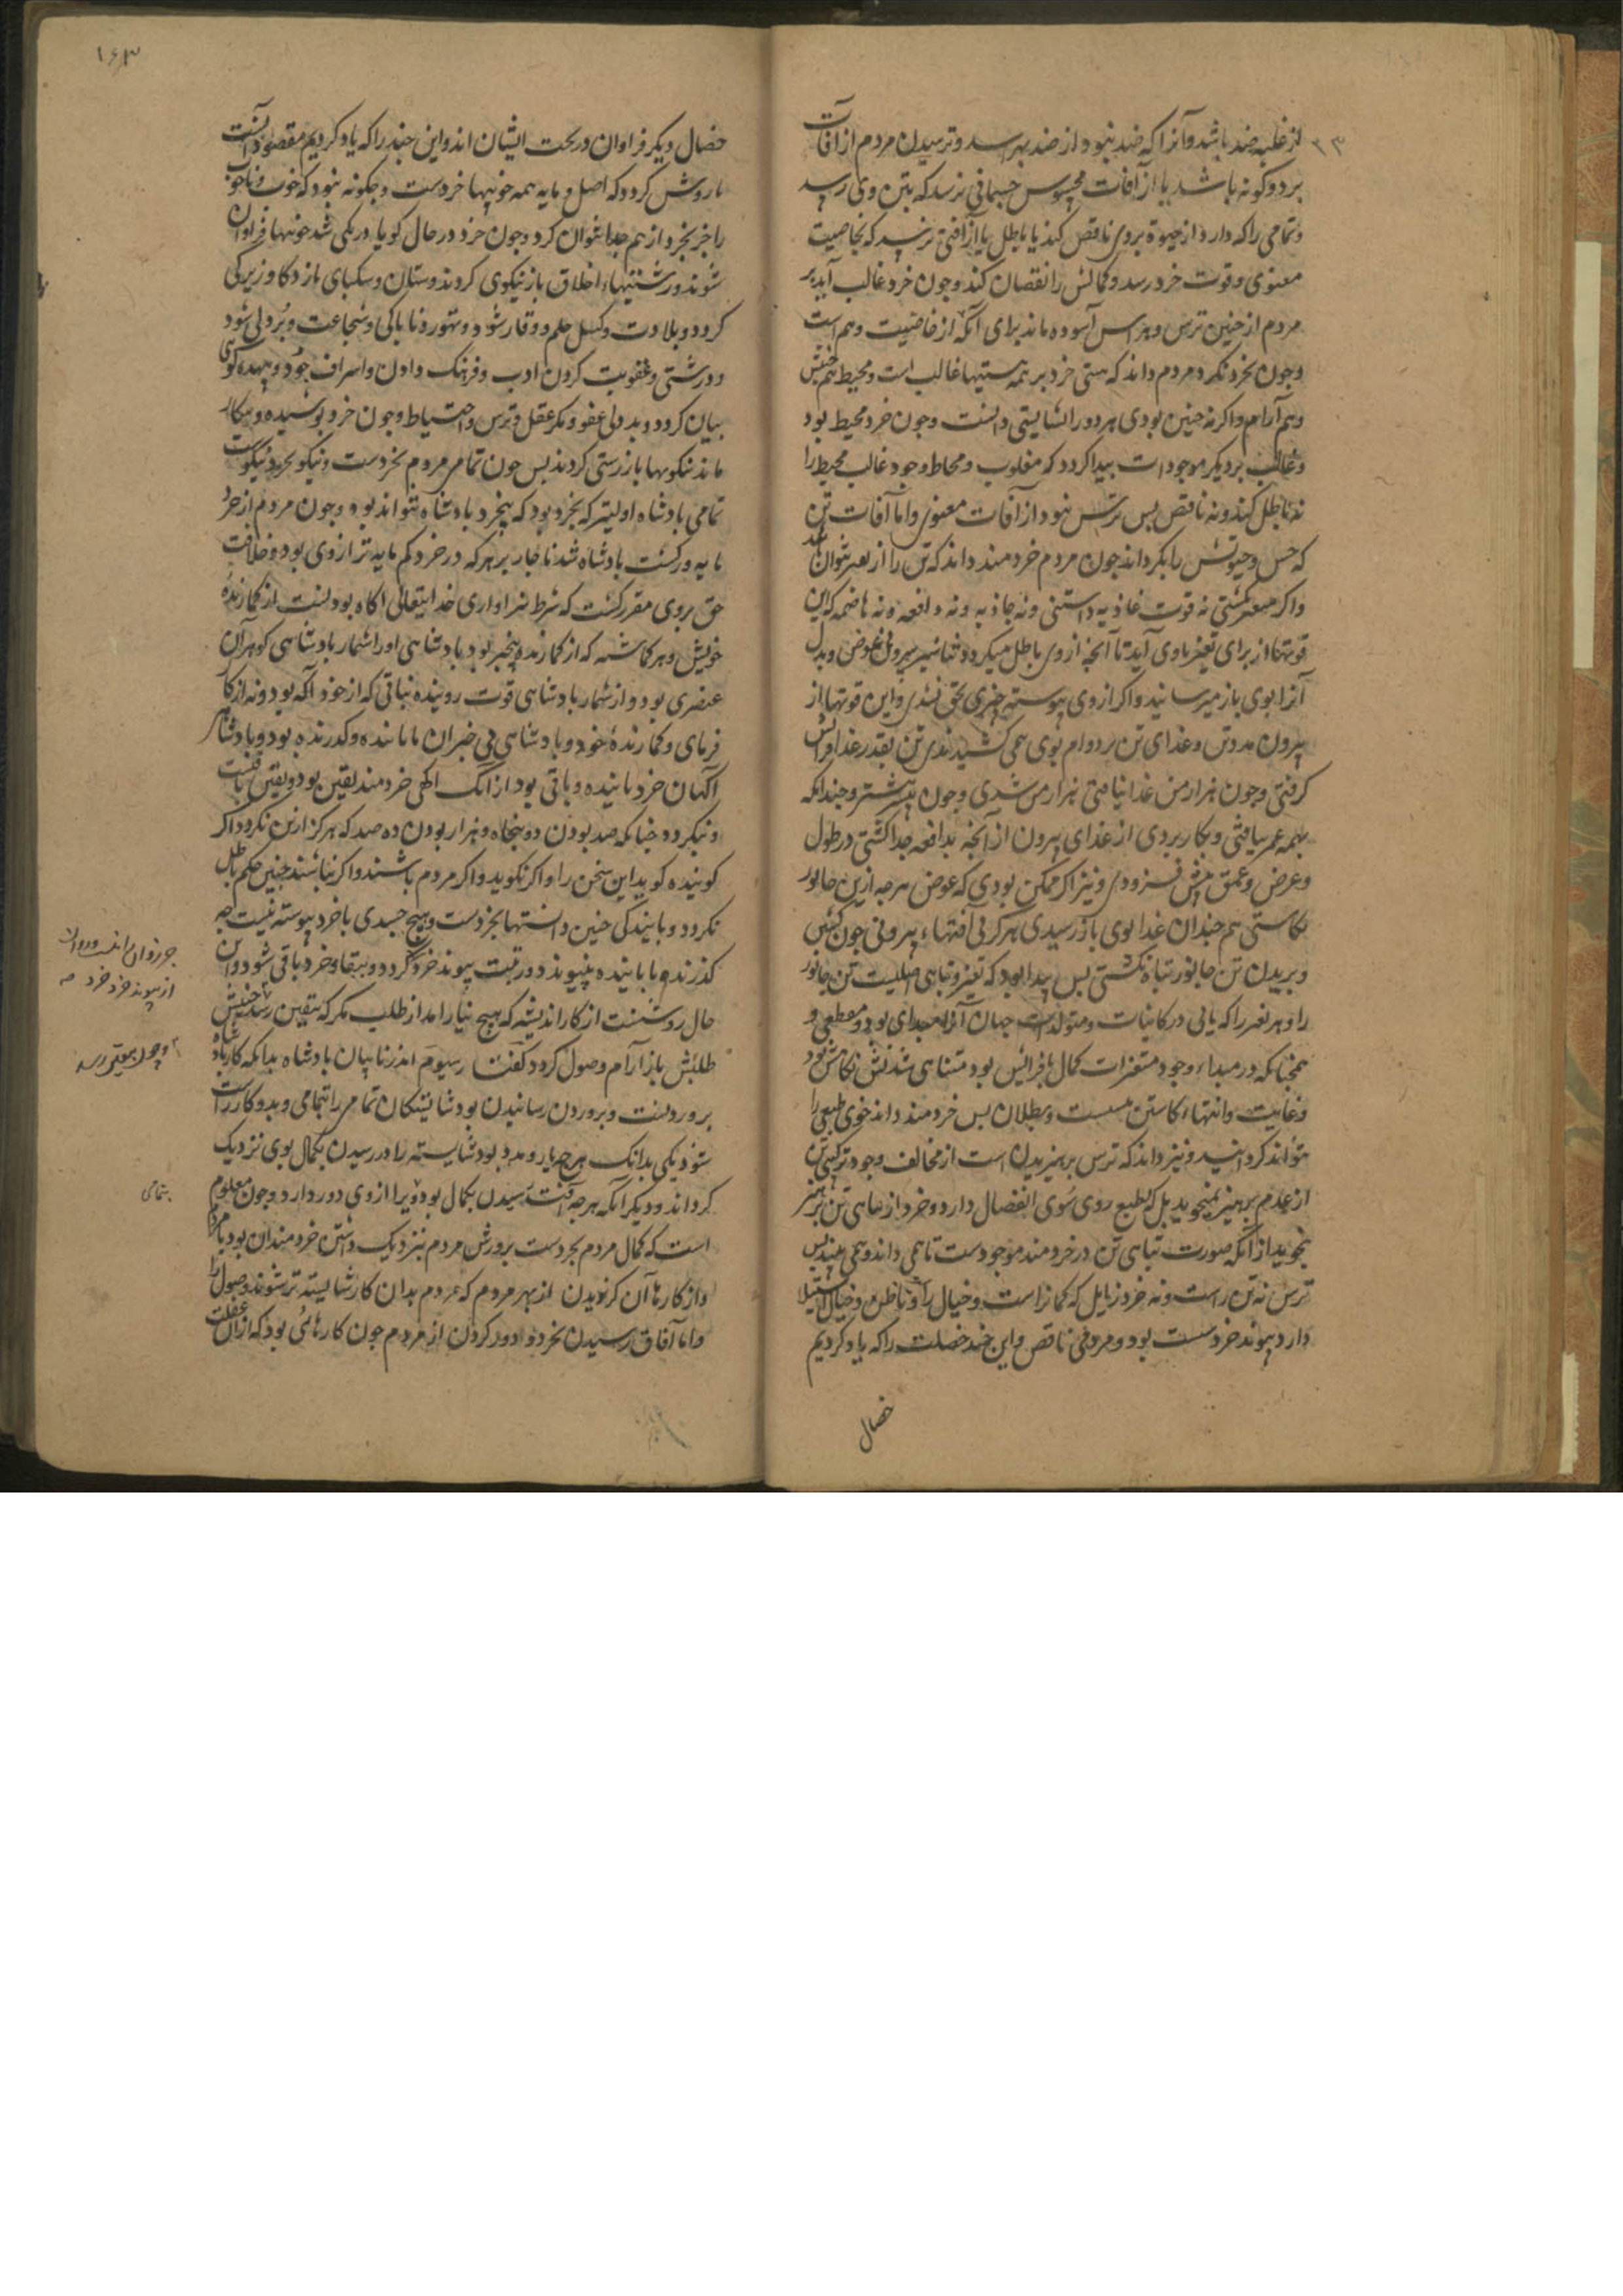 از غلبه ضد باشد و آنرا که ضد نبود از ضد بهراسد و ترسیدن مردم از آفات
بر دو گونه باشد یا از آفات محسوس جسمانی ترسد که بتن وی رسد
و تمامی را که دارد از حیوة بروی ناقص کند یا باطل یا از آفتی ترسد که بخاصیت
معنوی و قوت خرد رسد و کمالش را نقصان کند و چون خرد غالب آید بر
مردم از چنین ترس و هراس آسوده ماند برای آنکه از خاصیت وهم است
و چون بخرد نگرد مردم داند که هستی خرد بر همه هستیها غالب است و محیط هم جنبش
و هم آرام و اگر نه چنین بودی هر دو را نشایستی دانست و چون خرد محیط بود
و غالب بر دیگر موجودات پیدا گردد که مغلوب و محاط وجود غالب محیط را
نه باطل کند و نه ناقص پس ترس نبود از آفات معنوی و اما آفات تن
که حس و حیوتش را بگرداند چون مردم خردمند داند که تن را از تغیر نتوان
و اگر متغیر نگشتی نه قوت غاذیه داشتی و نه جاذبه و نه دافعه و نه هاضمه که این
قوتها از برای تغیر باوی آید تا آنچه از وی باطل میگردد عوض و بدل
آنرا بوی باز میرسانید و اگر از وی پیوسته چیزی و این قوتها از
بیرون مدد تن و غذای تن بر دوام بوی همی کشیدندی تن بقدر غذا
گرفتی و چون هزار من غذا یافتی هزار من شدی و چون بیشتر و چندانکه
بهمه عمر بیافتی و بکار بردی از غذای بیرون از آنچه بدافعه جدا گشتی در طول
و عرض و عمق تنش فزودی و نیز اگر ممکن بودی که عوض هر چه از تن جانور
بکاستی هم چندان غذا بوی باز رسیدی هرگز بی آفتهاء بیرونی چون کشتن
و بریدن تن جانور تباه نگشتی پس پیدا بود که تغیر و تباهی اصلیست تن جانور
را و هر تغیر را که یابی در کاینات و متولدات جهان آنرا مبدای بود و مقطعی و
همچنانکه در مبداء وجود متغیرات کمال بافزایش بود متناهی شدنش بکاهش بود
و غایت و انتهاء کاستن نیست و بطلان پس خردمند داند خوی طبعی را
نتواند گردانید و نیز داند که ترس پرهیزیدن است از مخالف وجود و ترکیب تن
از عدم پرهیز نمیجوید بل که بطبع روی سوی انفصال دارد و خرد از تباهی تن پرهیز
نجوید از آنکه صورت تباهی تن در خردمند موجودست تا همی داند و همی بیند پس
ترس نه تن راست و نه خرد را بل که گمانراست و خیال را و تا ظن و خیال استیلا
دارد پیوند خرد سست بود و مردمی ناقص و این چند خصلت را که یاد کردیم
خصال
۱۶۳
خصال دیگر فراوان در تحت ایشان اند و این چند را که یاد کردیم مقصود آنست
تا روشن گردد که اصل و مایه همه خوبیها خردست و چگونه نبود که خوب و ناخوب
را جز بخرد از هم جدا نتوان کرد و چون خرد در حال گویا در یکی شد خوبیها فراوان
شوند و زشتیهاء اخلاق باز نیکوی گردند
گردد و بلادت و کسل حلم و وقار شود و تهور و ناباکی شجاعت و پردلی شود
و درشتی و عقوبت کردن ادب و فرهنگ دادن و اسراف جود و بیهده گوی
بیان گردد و بددلی عفو و مکر عقل و ترس احتیاط و چون خرد پوشیده و بیکار
ماند نیکوییها باز زشتی گردند پس چون تمامی مردم بخردست و نیکو بخرد نیکوست
تمامی پادشاه اولیتر که بخرد بود که بیخرد پادشاه نتواند بود و چون مردم از خرد
مایه ور گشت پادشاه شد ناچار بر هر که در خرد کم مایه تر از وی بود و خلافت
حق بروی مقرر گشت که شرط سزاواری خدایتعالی آگاه بودنست از گمارنده
خویش و هر گماشته که از گمارنده بیخبر بود پادشاهی او را شمار پادشاهی گوهران
عنصری بود و از شمار پادشاهی قوت روینده نباتی که از خود آگه بود و نه از کار
فرمای و گمارنده خود و پادشاهی بی خبران نا ماننده و گذرنده بود و پادشاهی
آگهان خرد پاینده و باقی بود از آنک آگهی خردمند یقین بود و یقین ثابت
و نگردد چنانکه صد بودن دو پنجاه و هزار بودن ده صد که هرگز از این نگردد اگر
گوینده گوید این سخن را و اگر نگوید و اگر مردم باشند و اگر نباشند چنین حکم باطل
نگردد و پایندگی چنین دانستها بخردست و هیچ جسدی با خرد پیوسته نیست چه
گذرنده با پاینده نپیوندد و رتبت پیوند خرد گردد و ببقاء خرد باقی شود و آن
حال روشنست از کار اندیشه که هیچ نیارامد از طلب مگر که بیقین رسد جنبش
طلبش باز آرام وصول گردد گفتار سیوم اندر نا بیان پادشاه بدانکه کار پادشاه
پروردنست و پروردن رسانیدن بود شایستگان تمامی را بتمامی و بدو کار راست
شود یکی بدانک هر چه یار و مدد بود شایسته را در رسیدن بکمال بوی نزدیک
گرداند و دیگر آنکه هر چه آفت رسیدن بکمال بود ویرا از وی دور دارد و چون معلوم
است که کمال مردم بخردست پرورش مردم بنزدیک داشتن خردمندان بود با مردم
و از کارها آن گزیدن از بهر مردم که مردم بدان کار شایسته تر شوند وصول را
و اما آفات رسیدن بخرد و دور کردن از مردم چون کارهائی بود که از آن غفلت
از پیوند خرد خرد
و چون بیقین رسد
بتمامی